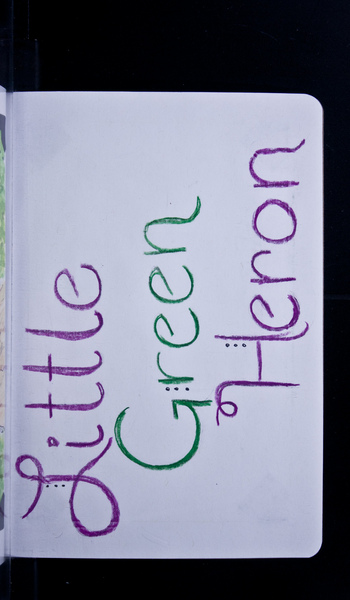 Little
Green
Heron